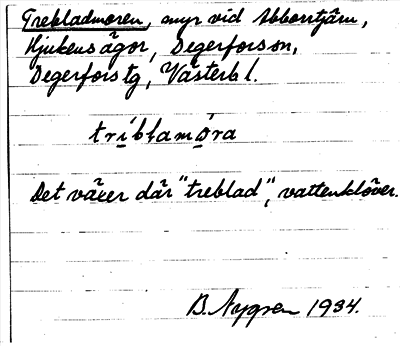 Trebladmoren, myr vid Abborrtjärn,
Hjukens ägor, Degerfors sn,
Degerfors tg, Västerb l.
triblamóra
Det växer där "treblad", vattenklöver.
B. Nygren 1934.